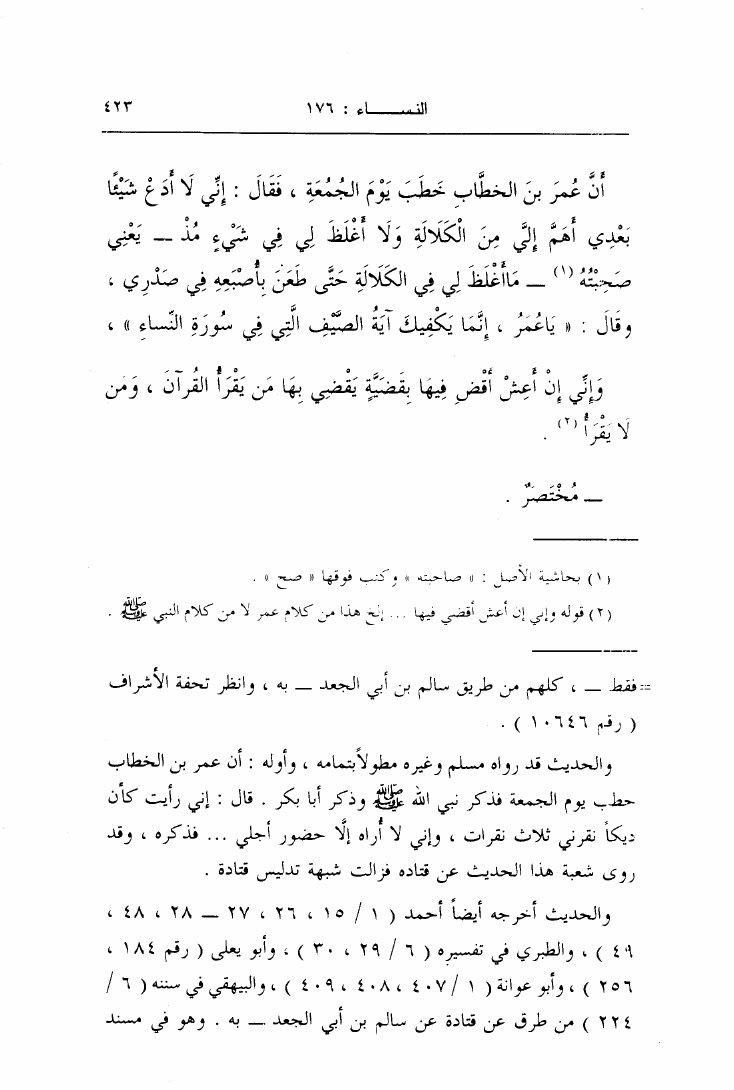 النساء : ١٧٦ ٤٢٣
أَنَّ عُمَرَ بنَ الخطَّابِ خَطَبَ يَوْمَ الجُمُعَةِ ، فَقَالَ : إِنِّي لَا أَدَعْ شَيْئًا
بَعْدِي أَهَمَّ إِلَيَّ مِنَ الْكَلَالَةِ وَلَا أَغْلَظَ لِي فِي شَيْءٍ مُذْ ــ يَعْنِي
صَحِبْتُهُ (١) ــ مَاأَغْلَظَ لِي فِي الكَلَالَةِ حَتَّى طَعَنَ بِأُصْبَعِهِ فِي صَدْرِي ،
وقَالَ : « يَاعُمَرُ ، إِنَّمَا يَكْفِيكَ آيَةُ الصَّيْفِ الَّتِي فِي سُورَةِ النِّساءِ » ،
وَإِنِّي إِنْ أَعِشْ أَقْضِ فِيهَا بِقَضِيَّةٍ يَقْضِي بِهَا مَن يَقْرَأُ القُرآنَ ، وَمَن
لَا يَقْرَأُ (٢) .
ــ مُخْتَصَرٌ .
(١) بحاشية الأصل : « صاحبته » وكتب فوقها « صح » .
(٢) قوله وإني إن أعش أقضي فيها ... إلخ هذا من كلام عمر لا من كلام النبي ﷺ .
=فقط ــ ، كلهم من طريق سالم بن أبي الجعد ــ به ، وانظر تحفة الأشراف
( رقم ١٠٦٤٦ ) .
والحديث قد رواه مسلم وغيره مطولاً بتمامه ، وأوله : أن عمر بن الخطاب
خطب يوم الجمعة فذكر نبي الله ﷺ وذكر أبا بكر . قال : إني رأيت كأن
ديكاً نقرني ثلاث نقرات ، وإني لا أُراه إلَّا حضور أجلي ... فذكره ، وقد
روى شعبة هذا الحديث عن قتاده فزالت شبهة تدليس قتادة .
والحديث أخرجه أيضاً أحمد ( ١ / ١٥ ، ٢٦ ، ٢٧ ــ ٢٨ ، ٤٨ ،
٤٩ ) ، والطبري في تفسيره ( ٦ / ٢٩ ، ٣٠ ) ، وأبو يعلى ( رقم ١٨٤ ،
٢٥٦ ) ، وأبو عوانة ( ١ / ٤٠٧ ، ٤٠٨ ، ٤٠٩ ) ، والبيهقي في سننه ( ٦ /
٢٢٤ ) من طرق عن قتادة عن سالم بن أبي الجعد ــ به . وهو في مسند